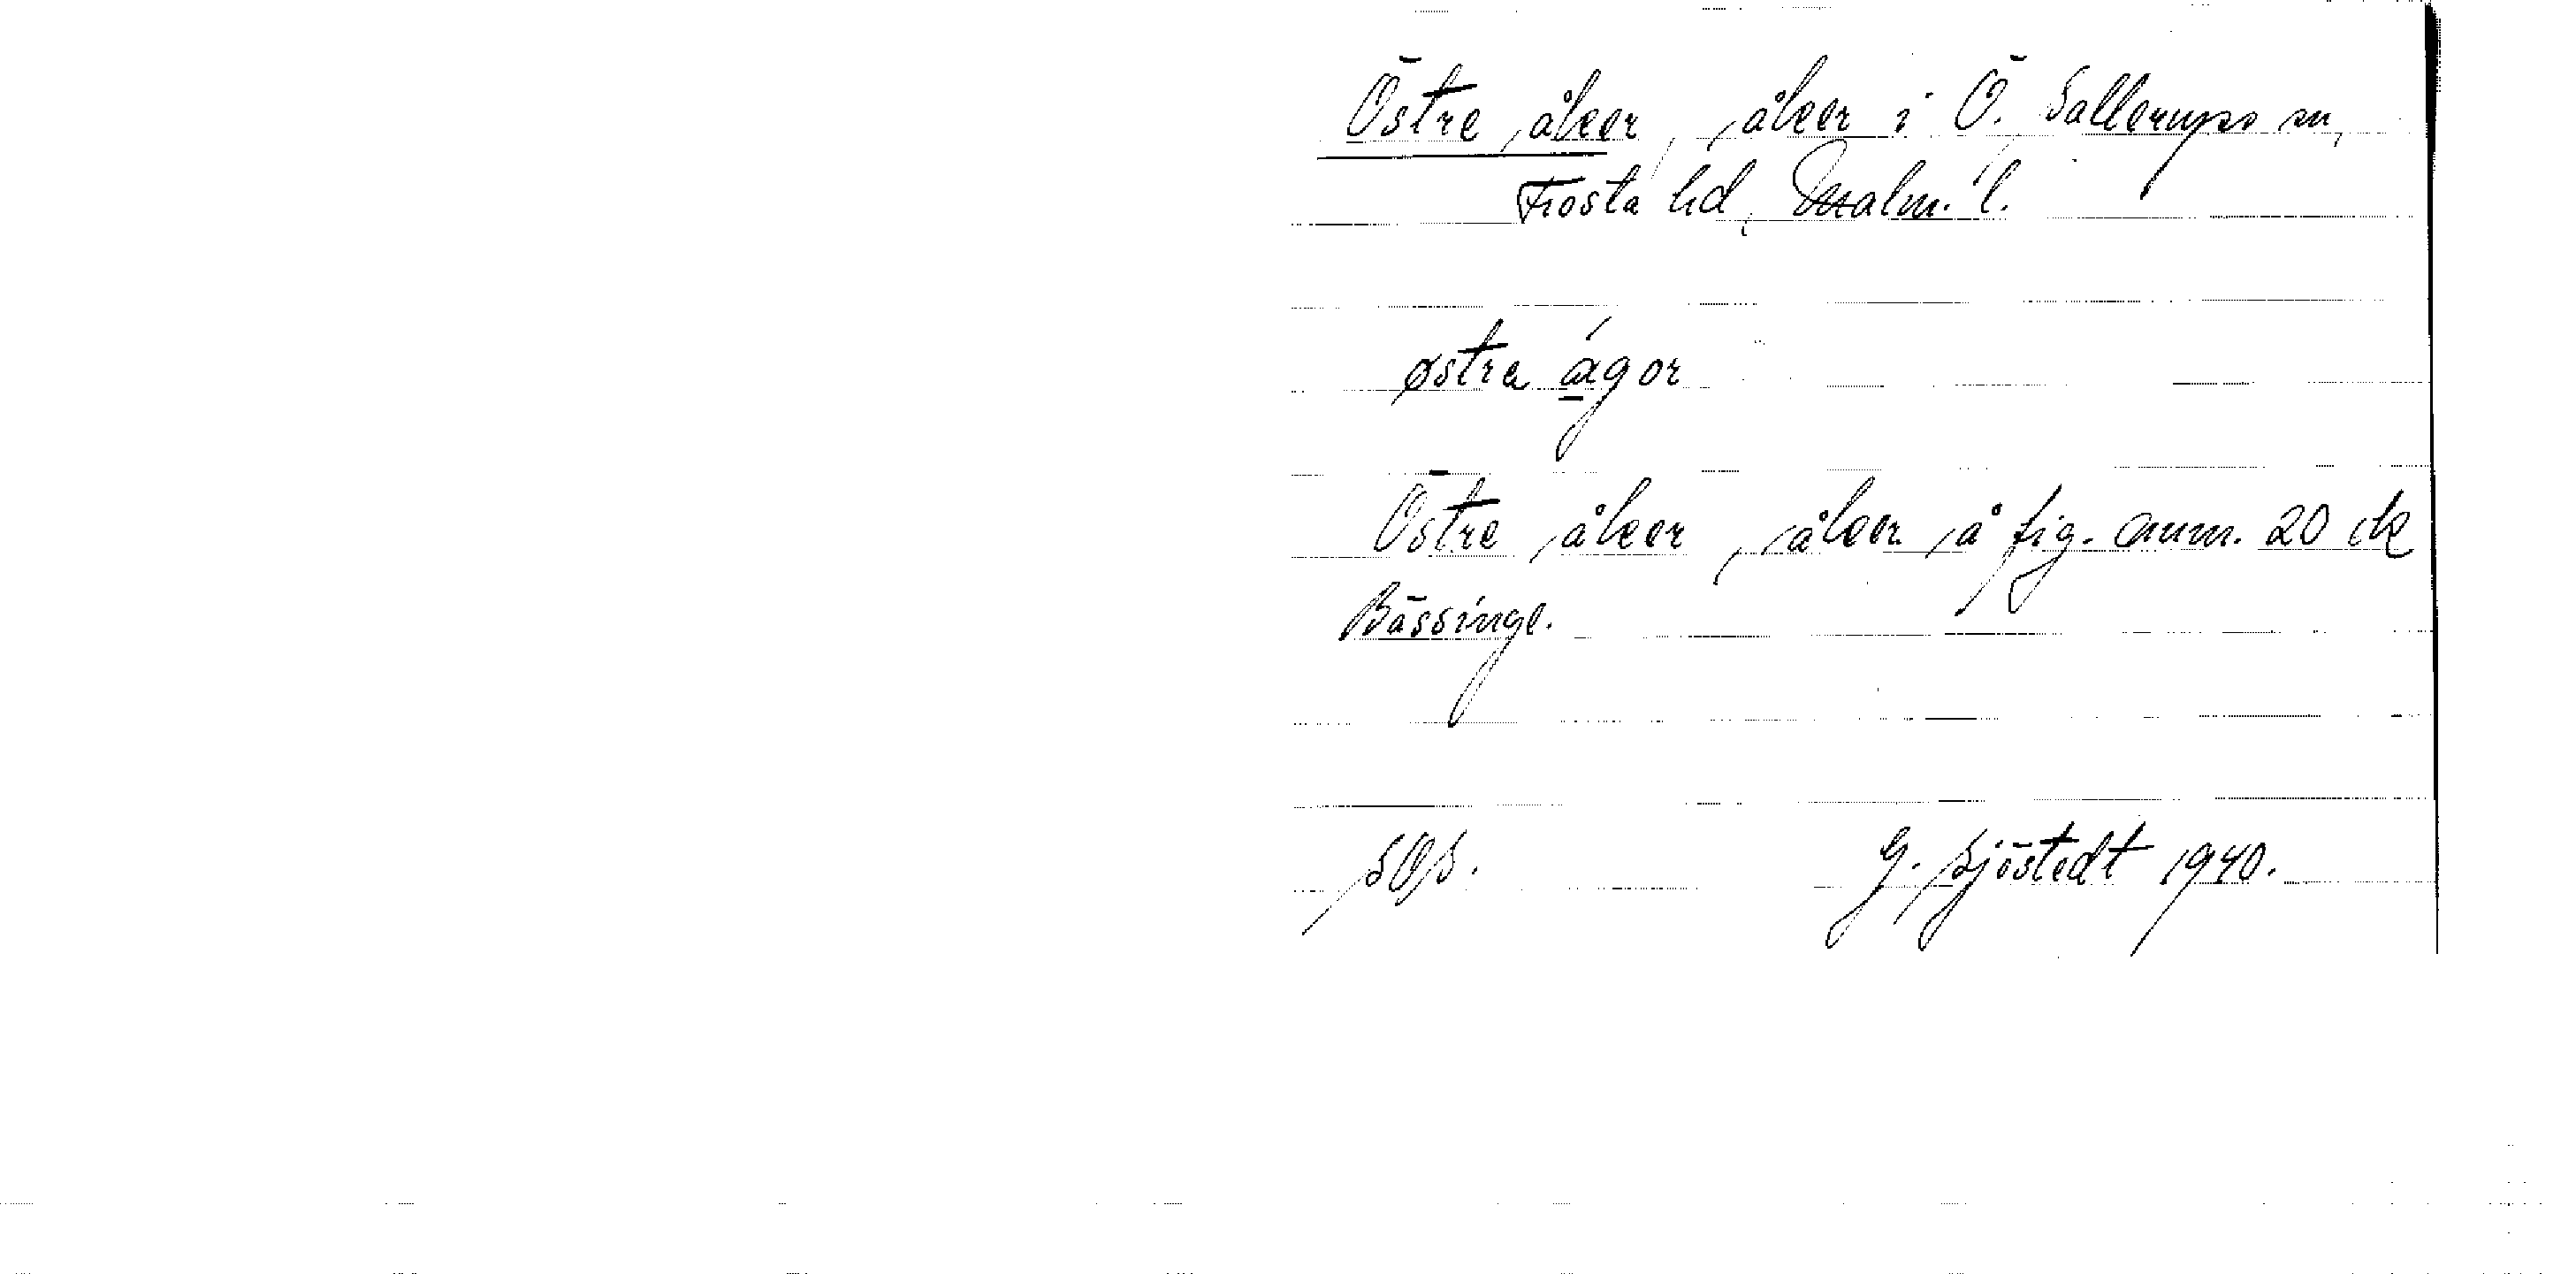 Östre åker, åker i Ö. Sallerups sn,
Frosta hd, Malm. l.
østra ágor
Östre åker, åker å fig. anm. 20 ck
Bässinge.
SOS.
G. Sjöstedt 1940.